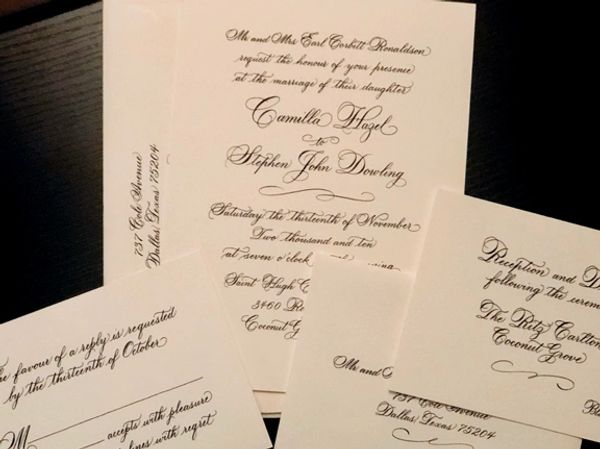 Mr and Mrs Earl Corbett Ronaldson
request the honour of your presence
at the marriage of their daughter
Camilla Hazel
to
Stephen John Dowling
Saturday the thirteenth of November
Two thousand and ten
at seven o'clock
Saint Hugh
3460
Coconut Grove
737 Cole Avenue
Dallas, Texas 75204
favour of a reply is requested
by the thirteenth of October
M
accepts with pleasure
with regret
Mr and
737 Cole Avenue
Dallas, Texas 75204
Reception and
following the
The Ritz Carlton
Coconut Grove